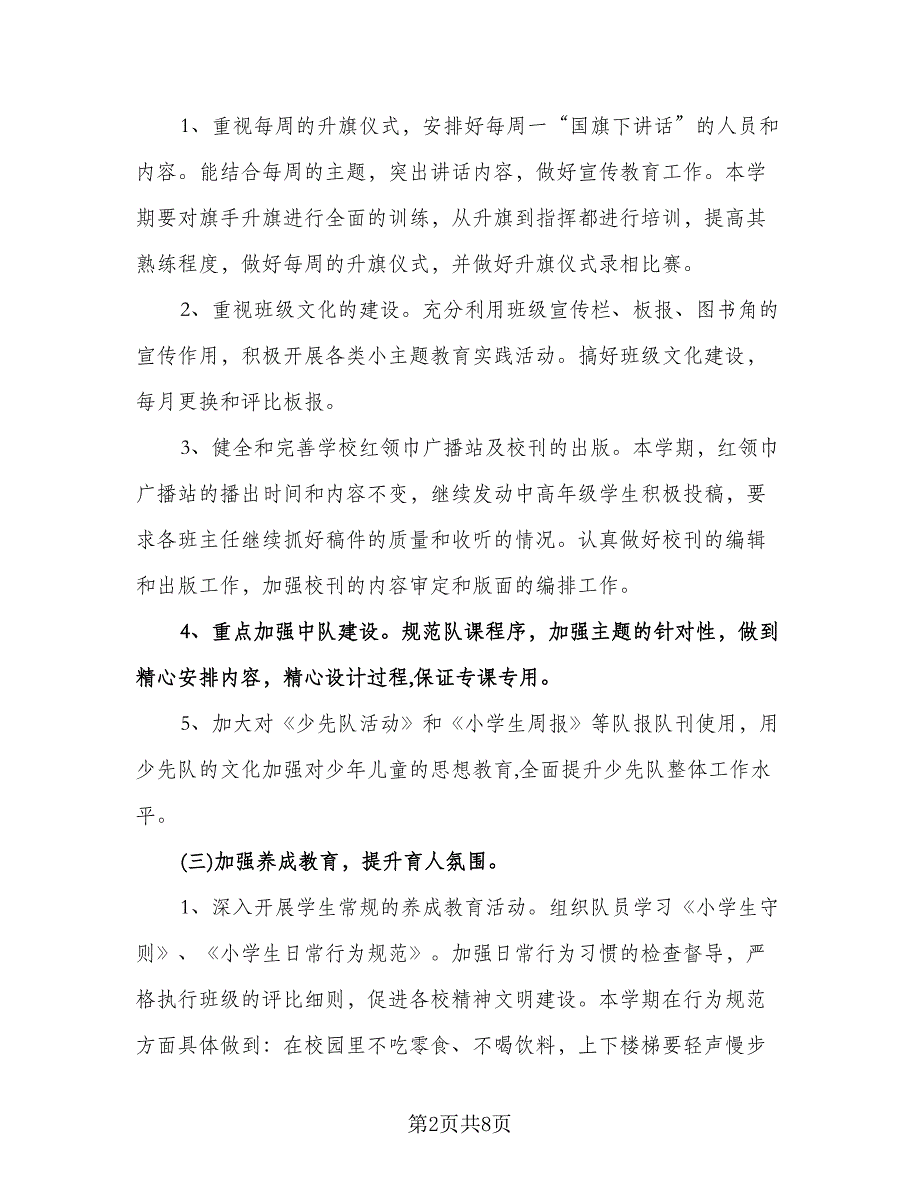 1、重视每周的升旗仪式，安排好每周一“国旗下讲话”的人员和
内容。能结合每周的主题，突出讲话内容，做好宣传教育工作。本学
期要对旗手升旗进行全面的训练，从升旗到指挥都进行培训，提高其
熟练程度，做好每周的升旗仪式，并做好升旗仪式录相比赛。
2、重视班级文化的建设。充分利用班级宣传栏、板报、图书角的
宣传作用，积极开展各类小主题教育实践活动。搞好班级文化建设，
每月更换和评比板报。
3、健全和完善学校红领巾广播站及校刊的出版。本学期，红领巾
广播站的播出时间和内容不变，继续发动中高年级学生积极投稿，要
求各班主任继续抓好稿件的质量和收听的情况。认真做好校刊的编辑
和出版工作，加强校刊的内容审定和版面的编排工作。
4、重点加强中队建设。规范队课程序，加强主题的针对性，做到
精心安排内容，精心设计过程,保证专课专用。
5、加大对《少先队活动》和《小学生周报》等队报队刊使用，用
少先队的文化加强对少年儿童的思想教育,全面提升少先队整体工作水
平。
(三)加强养成教育，提升育人氛围。
1、深入开展学生常规的养成教育活动。组织队员学习《小学生守
则》、《小学生日常行为规范》。加强日常行为习惯的检查督导，严
格执行班级的评比细则，促进各校精神文明建设。本学期在行为规范
方面具体做到：在校园里不吃零食、不喝饮料，上下楼梯要轻声慢步
第2页共8页